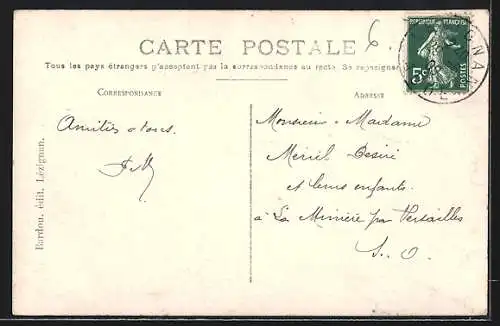 CARTE POSTALE
Tous les pays étrangers n'acceptent pas la correspondance au recto. Se renseigner
RÉPUBLIQUE FRANÇAISE
5c
POSTES
CORRESPONDANCE
ADRESSE
Amitiés à tous.
Monsieur Madame
Désiré
et leurs enfants.
à La Minière par Versailles
S. O.
Bardou, édit. Lézignan.